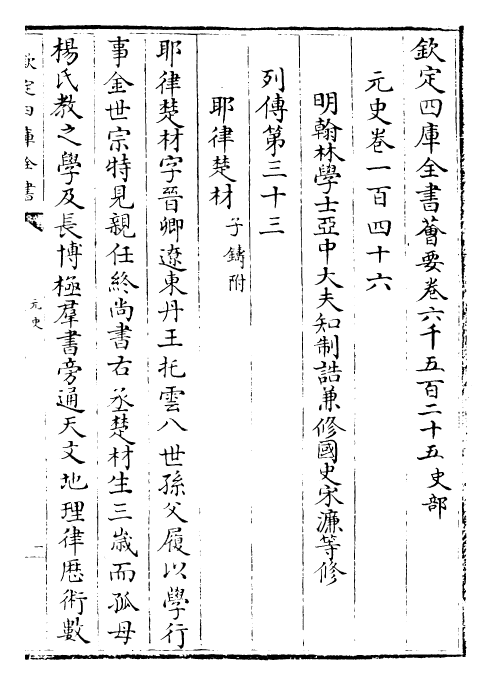 欽定四庫全書薈要卷六千五百二十五 史部
元史卷一百四十六
明翰林學士亞中大夫知制誥兼修國史宋濂等修
列傳第三十三
耶律楚材 子鑄附
耶律楚材字晉卿遼東丹王托雲八世孫父履以學行
事金世宗特見親任終尚書右丞楚材生三歳而孤母
楊氏教之學及長博極羣書旁通天文地理律厯術數
欽定四庫全書
元史
一